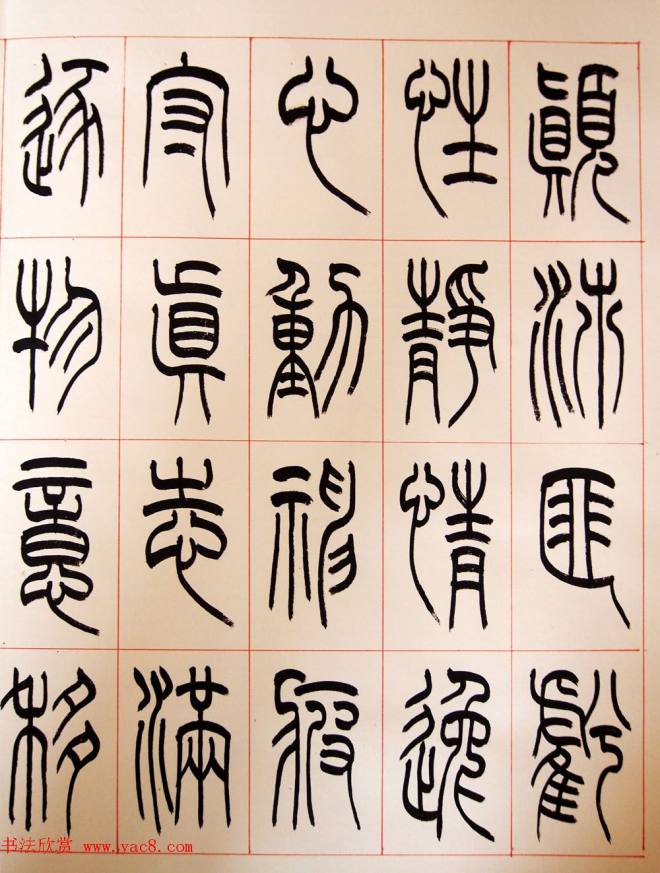 顛沛匪虧
性靜情逸
心動神疲
守真志滿
逐物意移
书法欣赏 www.yac8.com